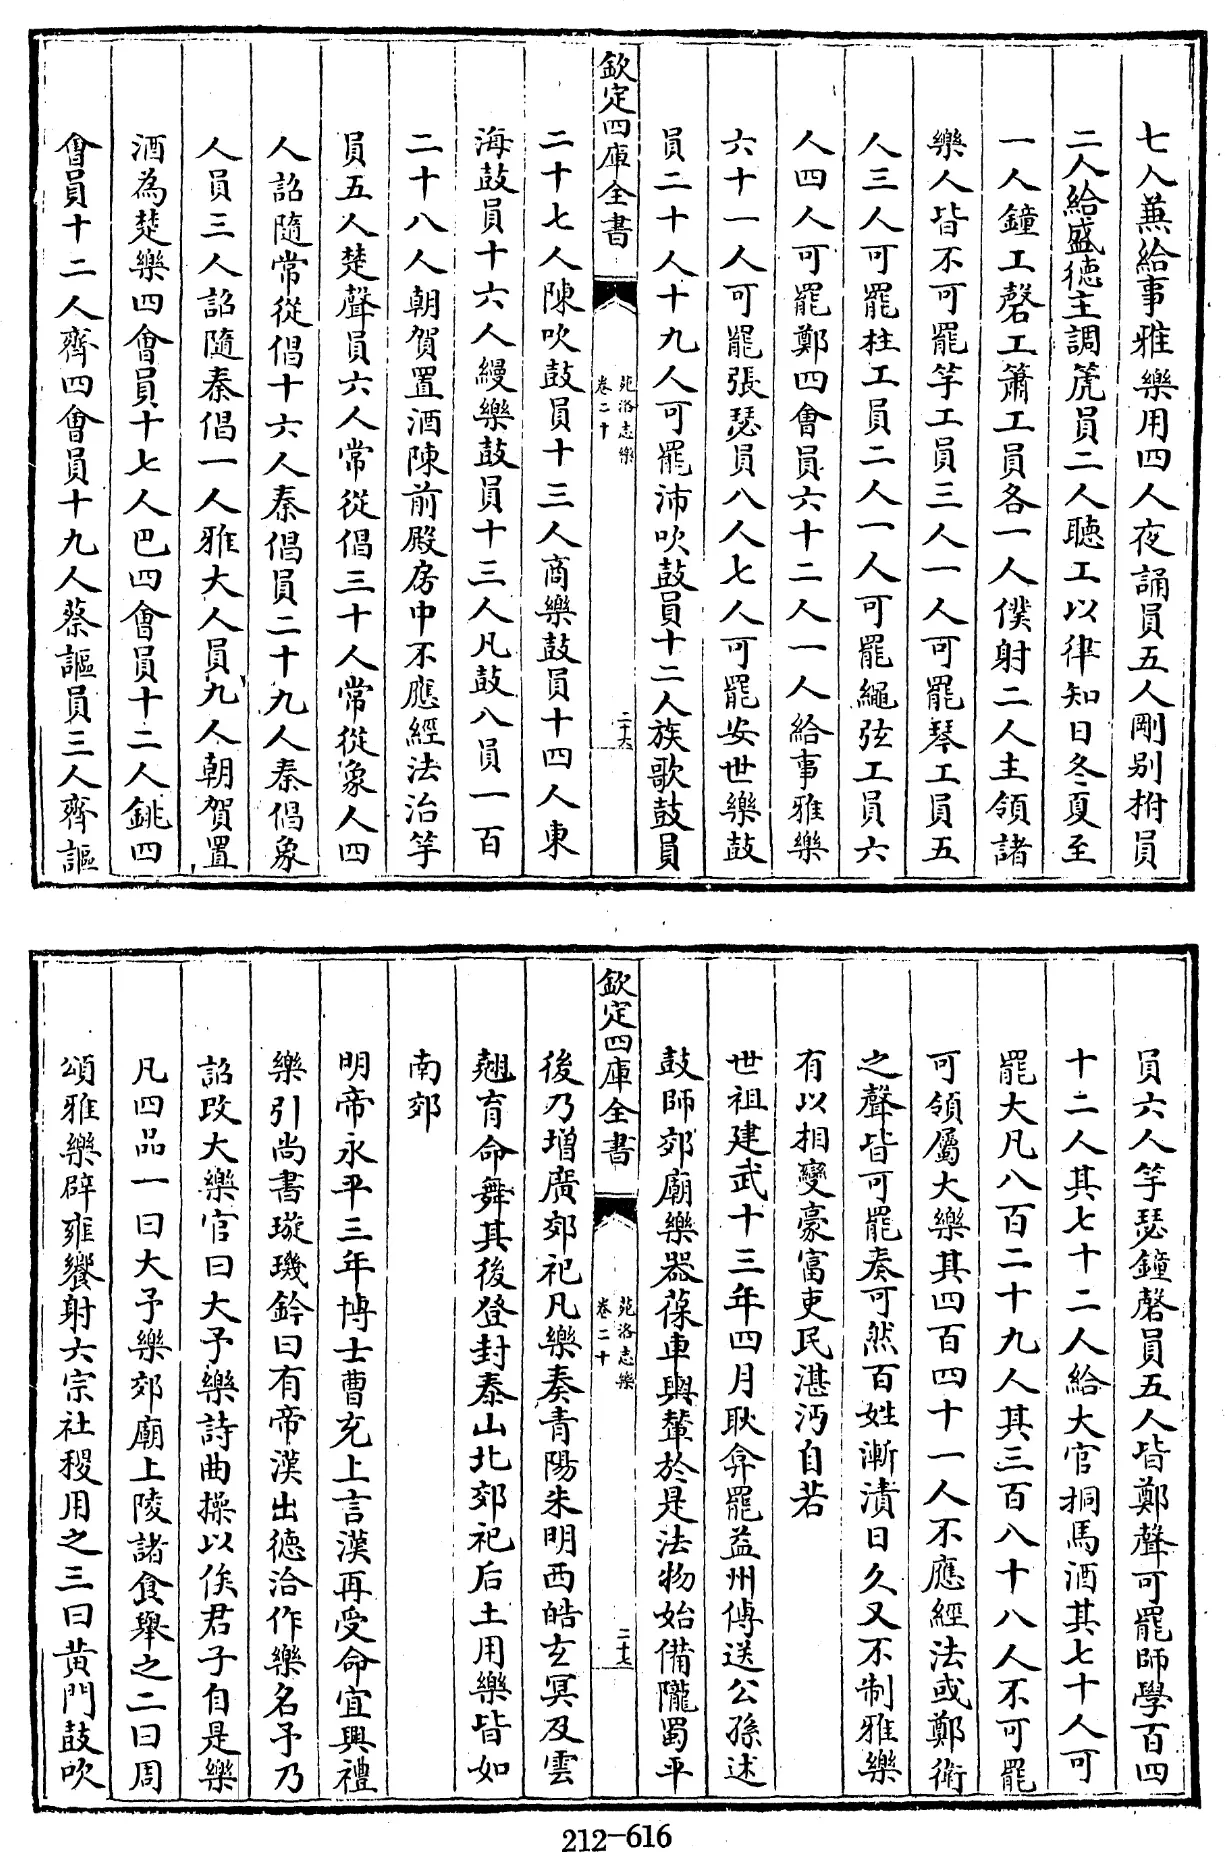 七人兼給事雅樂用四人夜誦員五人剛别柎員
二人給盛德主調箎員二人聽工以律知日冬夏至
一人鐘工磬工簫工員各一人僕射二人主領諸
樂人皆不可罷竽工員三人一人可罷琴工員五
人三人可罷柱工員二人一人可罷繩弦工員六
人四人可罷鄭四會員六十二人一人給事雅樂
六十一人可罷張瑟員八人七人可罷安世樂鼓
員二十人十九人可罷沛吹鼓員十二人族歌鼓員
欽定四庫全書
苑洛志樂
卷二十
二十六
二十七人陳吹鼓員十三人商樂鼓員十四人東
海鼓員十六人縵樂鼓員十三人凡鼓八員一百
二十八人朝賀置酒陳前殿房中不應經法治竽
員五人楚聲員六人常從倡三十人常從象人四
人詔隨常從倡十六人秦倡員二十九人秦倡象
人員三人詔隨秦倡一人雅大人員九人朝賀置
酒為楚樂四會員十七人巴四會員十二人銚四
會員十二人齊四會員十九人蔡謳員三人齊謳
員六人竽瑟鐘磬員五人皆鄭聲可罷師學百四
十二人其七十二人給大官挏馬酒其七十人可
罷大凡八百二十九人其三百八十八人不可罷
可領屬大樂其四百四十一人不應經法或鄭衛
之聲皆可罷奏可然百姓漸漬日久又不制雅樂
有以相變豪富吏民湛沔自若
世祖建武十三年四月耿弇罷益州傳送公孫述
鼓師郊廟樂器葆車輿輦於是法物始備隴蜀平
欽定四庫全書
苑洛志樂
卷二十
二十七
後乃增廣郊祀凡樂奏青陽朱明西皓玄冥及雲
翹育命舞其後登封泰山北郊祀后土用樂皆如
南郊
明帝永平三年博士曹充上言漢再受命宜興禮
樂引尚書璇璣鈐曰有帝漢出德洽作樂名予乃
詔改大樂官曰大予樂詩曲操以俟君子自是樂
凡四品一曰大予樂郊廟上陵諸食舉之二曰周
頌雅樂辟雍饗射六宗社稷用之三曰黃門鼓吹
212-616